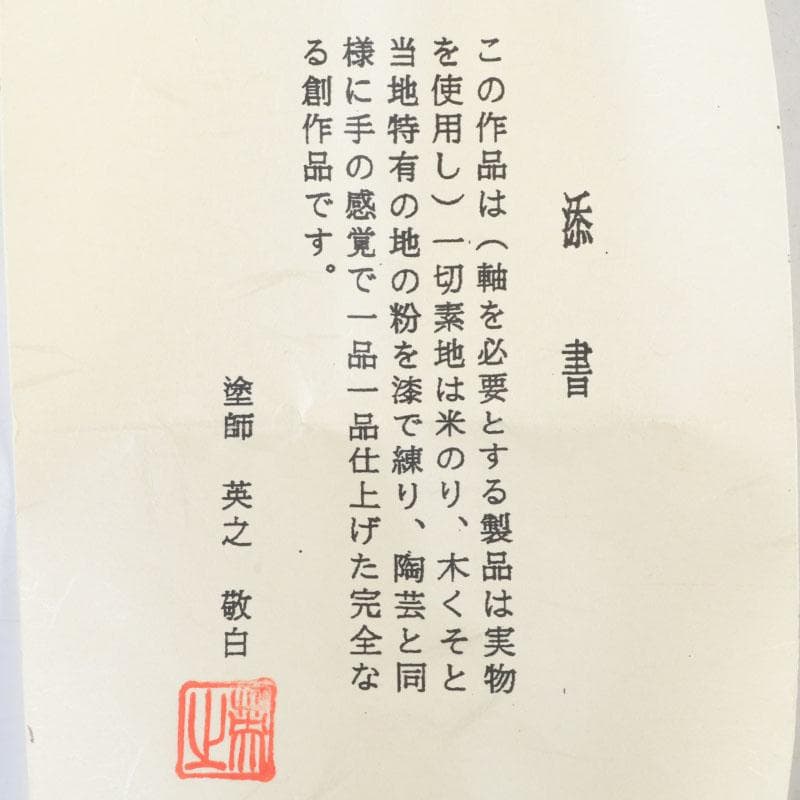 添書
この作品は（軸を必要とする製品は実物
を使用し）一切素地は米のり、木くそと
当地特有の地の粉を漆で練り、陶芸と同
様に手の感覚で一品一品仕上げた完全な
る創作品です。
塗師 英之 敬白
英之